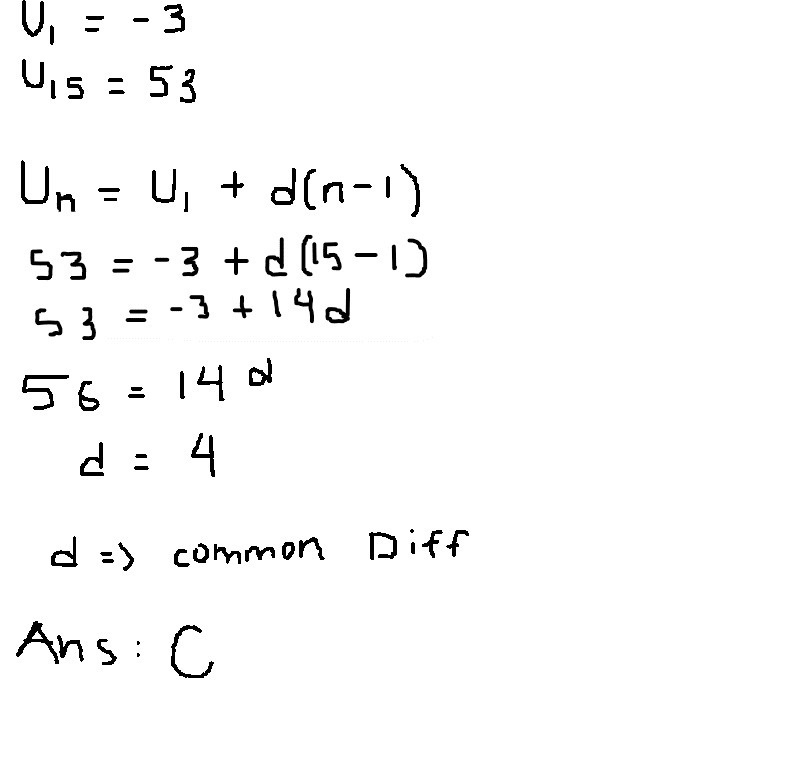 U₁ = -3
U₁₅ = 53
Uₙ = U₁ + d(n-1)
53 = -3 + d(15-1)
53 = -3 + 14d
56 = 14d
d = 4
d => common Diff
Ans: C